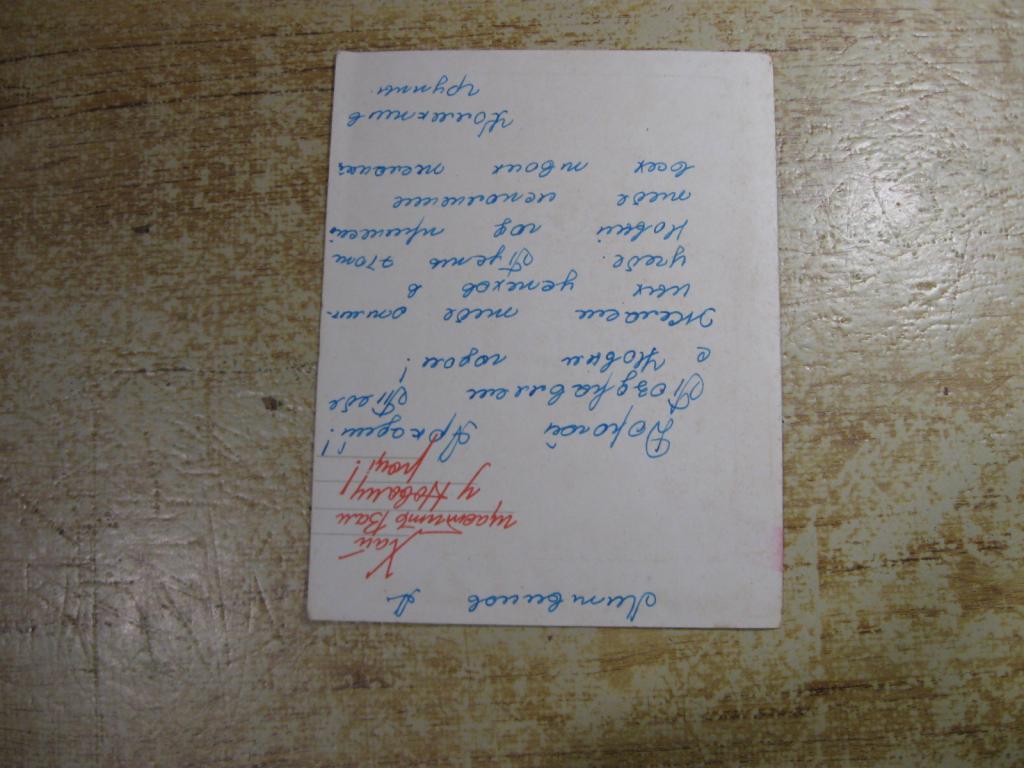 Литвинов А.
Хай
щаститъ Вам
у Новому
році!
Дорогой Аркадий!
Поздравляем Тебя
с Новым годом!
Желаем тебе отлич-
ных успехов в
учебе. Пусть этот
Новый год принесет
тебе исполнение
всех твоих желаний.
Коллектив
группы.